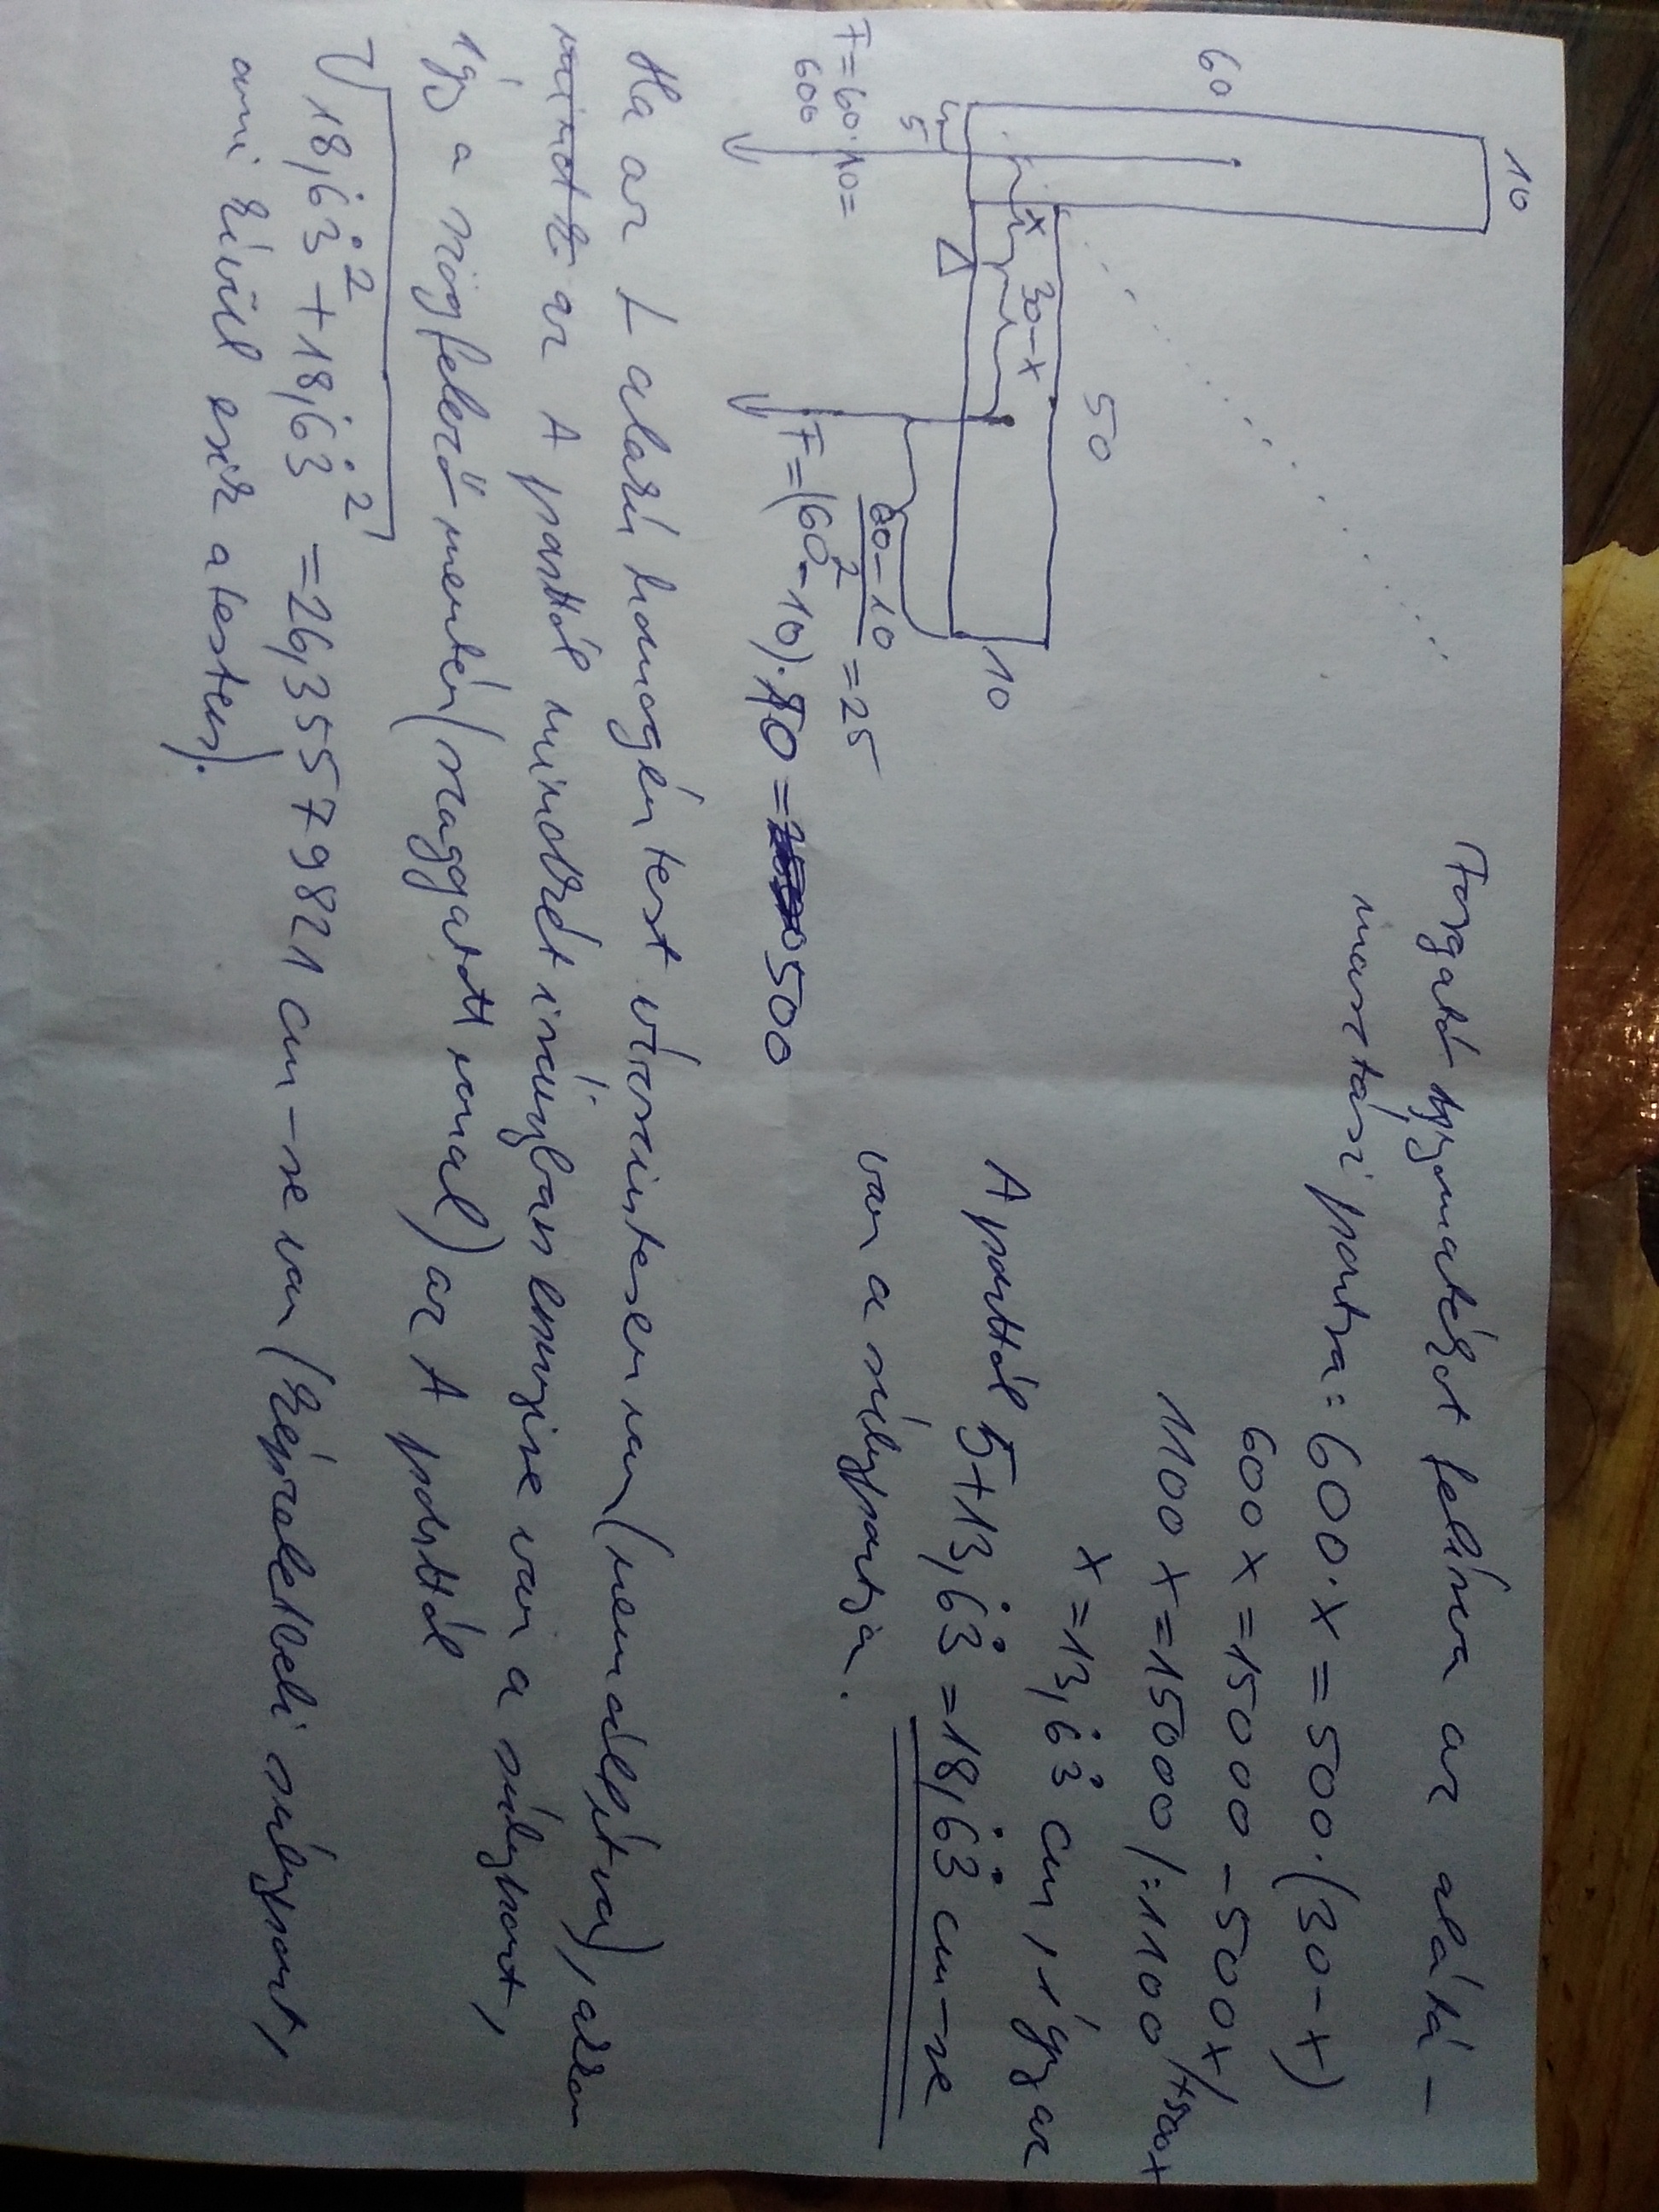 10
60
50
x 30-x
10
5
60-10 / 2 = 25
F=60·10=
600
F=(60-10)·10=500
Forgató nyomatékot felírva az alátá-
masztási pontra: 600·x=500·(30-x)
600x=15000-500x/+500x
1100x=15000/:1100
x=13,6̇3̇ cm, így az
A ponttól 5+13,6̇3̇=18,6̇3̇ cm-re
van a súlypontja.
Ha az L alakú homogén test vízszintesen van (nem állítva), akkor
az A ponttól mindkét irányban ennyire van a súlypont,
így a szögfelező mentén (szaggatott vonal) az A ponttól
√18,6̇3̇²+18,6̇3̇² =26,35579821 cm-re van (képzeletbeli súlypont,
ami kívül esik a testen).